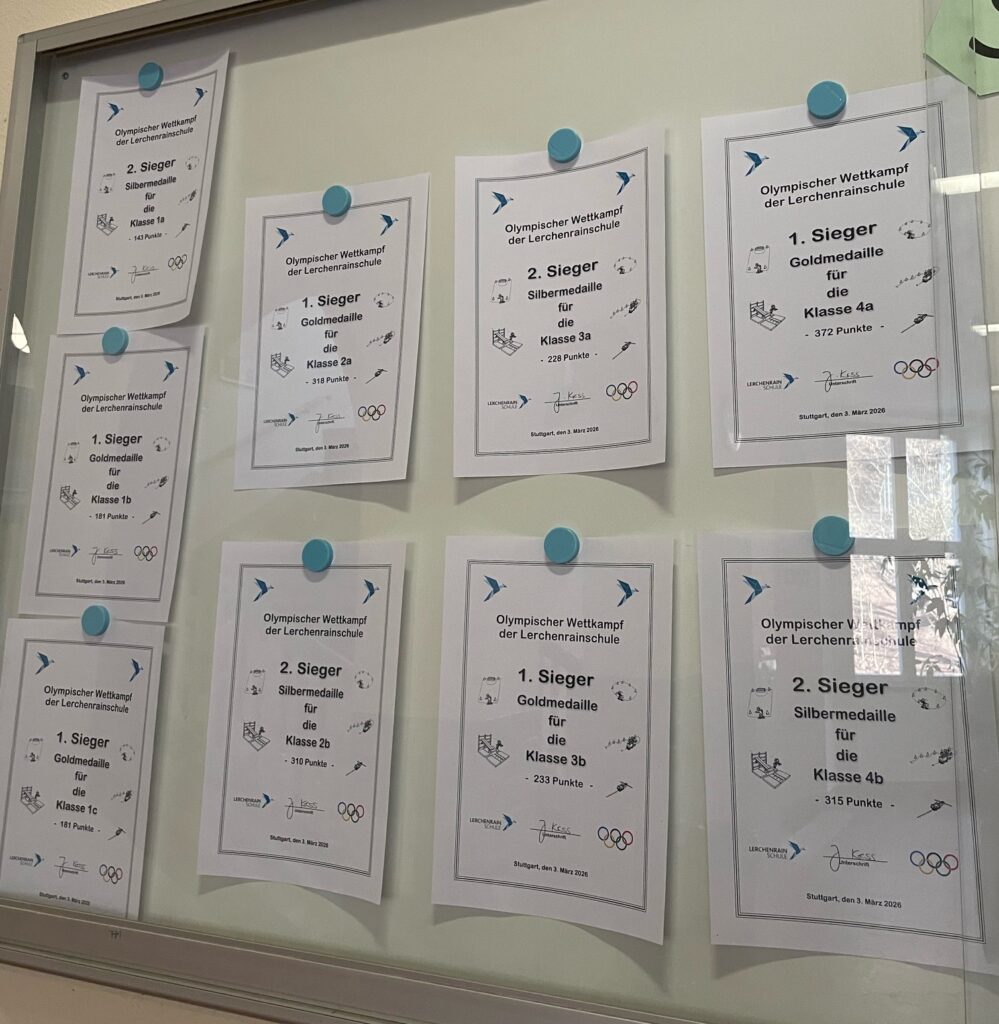 Olympischer Wettkampf
der Lerchenrainschule
2. Sieger
Silbermedaille
für
die
Klasse 1a
- 143 Punkte -
LERCHENRAIN
SCHULE
J. Kess
Unterschrift
Stuttgart, den 3. März 2026
Olympischer Wettkampf
der Lerchenrainschule
1. Sieger
Goldmedaille
für
die
Klasse 1b
- 181 Punkte -
LERCHENRAIN
SCHULE
J. Kess
Unterschrift
Stuttgart, den 3. März 2026
Olympischer Wettkampf
der Lerchenrainschule
1. Sieger
Goldmedaille
für
die
Klasse 1c
- 181 Punkte -
LERCHENRAIN
SCHULE
J. Kess
Unterschrift
Stuttgart, den 3. März 2026
Olympischer Wettkampf
der Lerchenrainschule
1. Sieger
Goldmedaille
für
die
Klasse 2a
- 318 Punkte -
LERCHENRAIN
SCHULE
J. Kess
Unterschrift
Stuttgart, den 3. März 2026
Olympischer Wettkampf
der Lerchenrainschule
2. Sieger
Silbermedaille
für
die
Klasse 2b
- 310 Punkte -
LERCHENRAIN
SCHULE
J. Kess
Unterschrift
Stuttgart, den 3. März 2026
Olympischer Wettkampf
der Lerchenrainschule
2. Sieger
Silbermedaille
für
die
Klasse 3a
- 228 Punkte -
LERCHENRAIN
SCHULE
J. Kess
Unterschrift
Stuttgart, den 3. März 2026
Olympischer Wettkampf
der Lerchenrainschule
1. Sieger
Goldmedaille
für
die
Klasse 3b
- 233 Punkte -
LERCHENRAIN
SCHULE
J. Kess
Unterschrift
Stuttgart, den 3. März 2026
Olympischer Wettkampf
der Lerchenrainschule
1. Sieger
Goldmedaille
für
die
Klasse 4a
- 372 Punkte -
LERCHENRAIN
SCHULE
J. Kess
Unterschrift
Stuttgart, den 3. März 2026
Olympischer Wettkampf
der Lerchenrainschule
2. Sieger
Silbermedaille
für
die
Klasse 4b
- 315 Punkte -
LERCHENRAIN
SCHULE
J. Kess
Unterschrift
Stuttgart, den 3. März 2026